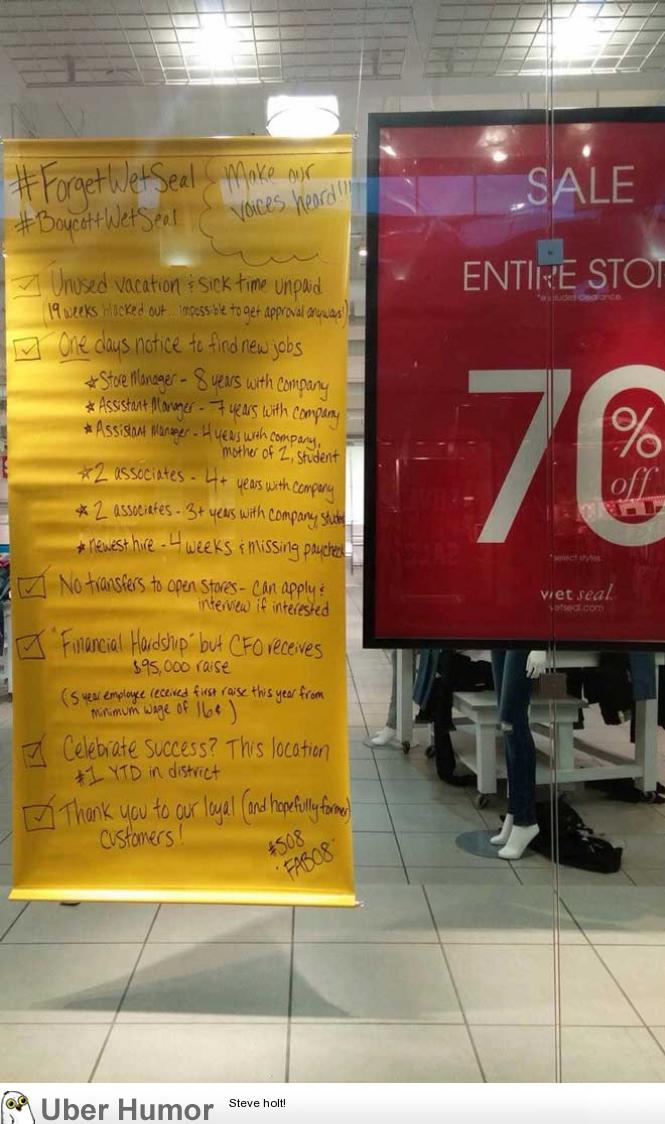 #ForgetWetSeal
#BoycottWetSeal
Make our
voices heard!!!
Unused vacation & sick time unpaid
(19 weeks blocked out... impossible to get approval anyways!)
One days notice to find new jobs
★ Store Manager - 8 years with company
★ Assistant Manager - 7 years with company
★ Assistant Manager - 4 years with company,
mother of 2, student
★ 2 associates - 4+ years with company
★ 2 associates - 3+ years with company, student
★ newest hire - 4 weeks & missing paycheck
No transfers to open stores - can apply &
interview if interested
"Financial Hardship" but CFO receives
$95,000 raise
(5 year employee received first raise this year from
minimum wage of 16¢)
Celebrate success? This location
#1 YTD in district
Thank you to our loyal (and hopefully former)
customers!
#508
FAB08
SALE
ENTIRE STOR
*excludes clearance.
70
%
off
*select styles.
wet seal.
wetseal.com
Uber Humor
Steve holt!